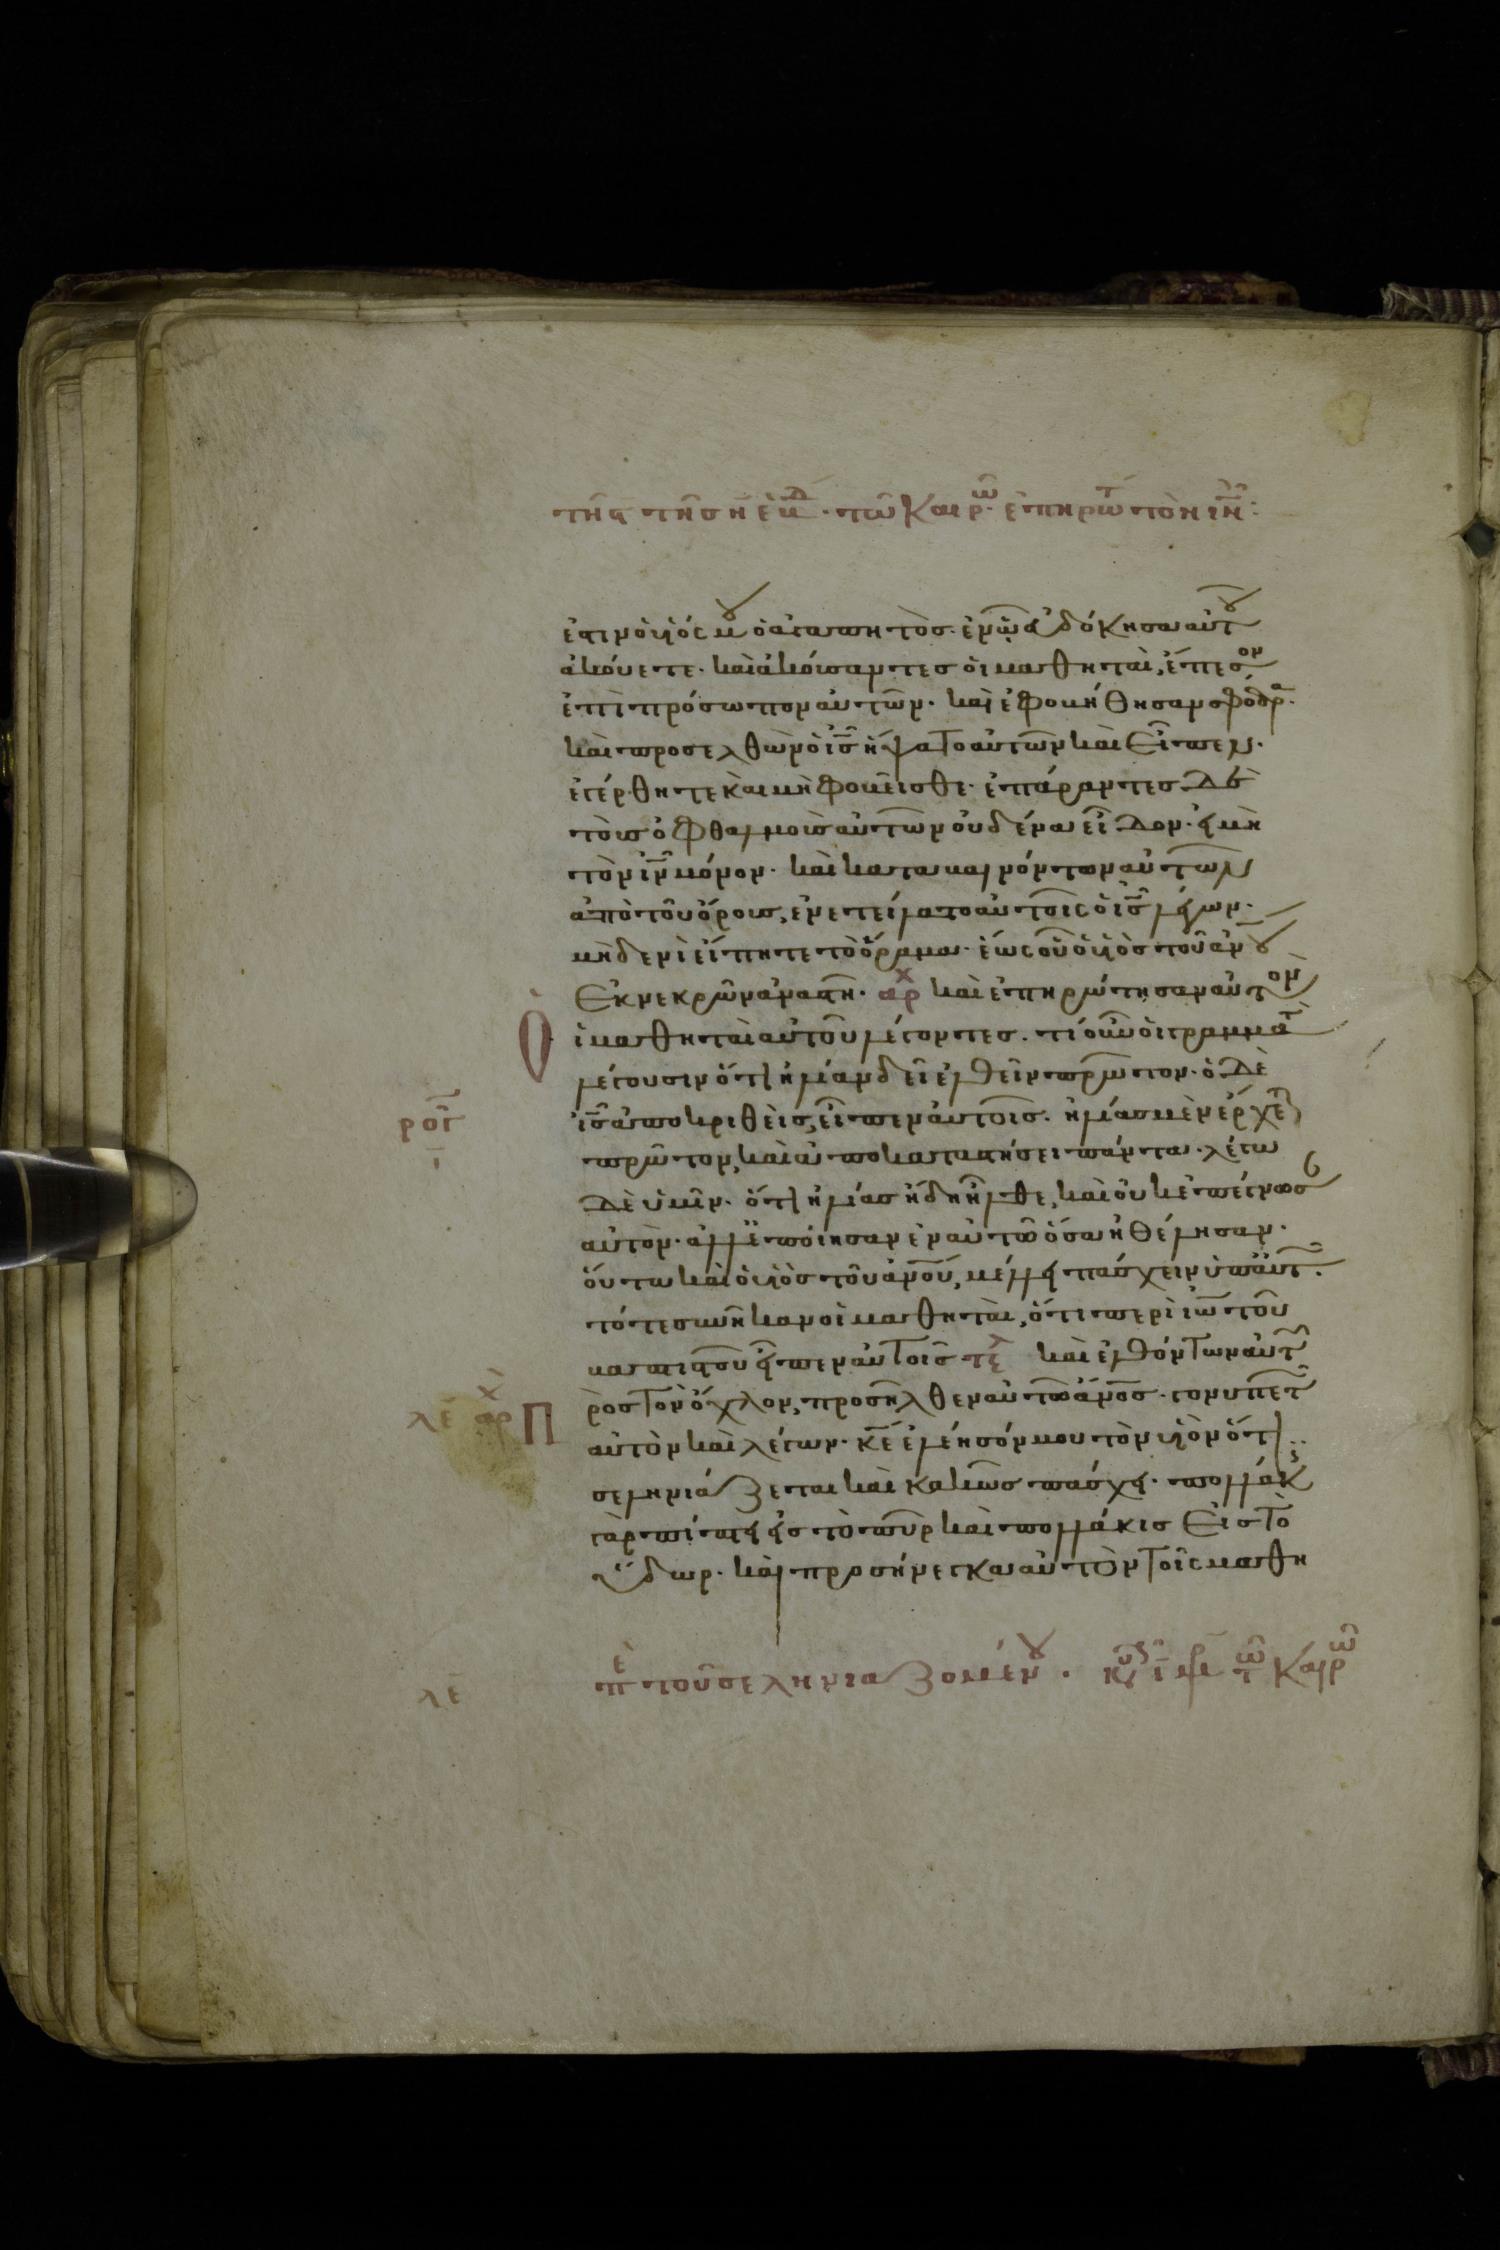 τῆ ϛ τῆς η ἑβδ. τῶ καιρῶ. ἐπηρώτ τὸν ιν:
ἐστιν ὁ υἱός μου ὁ ἀγαπητὸς. ἐν ᾧ εὐδόκησα αὐτοῦ
ἀκούετε. καὶ ἀκούσαντες οἱ μαθηταὶ, ἔπεσον
ἐπὶ πρόσωπον αὐτῶν. καὶ ἐφοβήθησαν σφόδρα.
καὶ προσελθὼν ὁ ις ἥψατο αὐτῶν καὶ εἶπεν.
ἐγέρθητε καὶ μὴ φοβεῖσθε. ἐπάραντες δὲ
τοὺς ὀφθαλμοὺς αὐτῶν οὐδένα εἶδον. εἰ μὴ
τὸν ιν μόνον. καὶ καταβαινόντων αὐτῶν
ἀπὸ τοῦ ὄρους, ἐνετείλατο αὐτοῖς ὁ ις λέγων.
μηδενὶ εἴπητε τὸ ὅραμα. ἕως οὗ ὁ υἱὸς τοῦ ανου
ἐκ νεκρῶν ἀναστῆ. αρχ καὶ ἐπηρώτησαν αὐτὸν
Οἱ μαθηταὶ αὐτοῦ λέγοντες. τί οὖν οἱ γραμματ
λέγουσιν ὅτι ἠλίαν δεῖ ἐλθεῖν πρῶτον. ὁ δὲ
ροϊ
ις ἀποκριθεὶς, εἶπεν αὐτοῖς. ἠλίας μὲν ἔρχετ
πρῶτον, καὶ ἀποκαταστήσει πάντα. λέγω
δὲ ὑμῖν. ὅτι ἠλίας ἤδη ἦλθε, καὶ οὐκ ἐπέγνωσ
αὐτὸν. ἀλλ ἐποίησαν ἐν αὐτῶ ὅσα ἠθέλησαν.
οὕτω καὶ ὁ υἱὸς τοῦ ανου, μέλλει πάσχειν ὑπ αὐτ.
τότε συνῆκαν οἱ μαθηταὶ, ὅτι περὶ ιω τοῦ
βαπτιστοῦ εἶπεν αὐτοῖς τελ καὶ ἐλθόντων αὐτ
λε αρχ Πρὸς τὸν ὄχλον, προσῆλθεν αὐτῶ ανος. γονυπετ
αὐτὸν καὶ λέγων. κε ἐλέησόν μου τὸν υἱὸν ὅτι..
σεληνιάζεται καὶ κακῶς πάσχει. πολλάκις
γὰρ πίπτει εἰς τὸ πῦρ καὶ πολλάκις εἰς τὸ
ὕδωρ. καὶ προσήνεγκα αὐτὸν τοῖς μαθη
λε πε τοῦ σεληνιαζομένου. κυ ι μθ τῶ καιρῶ